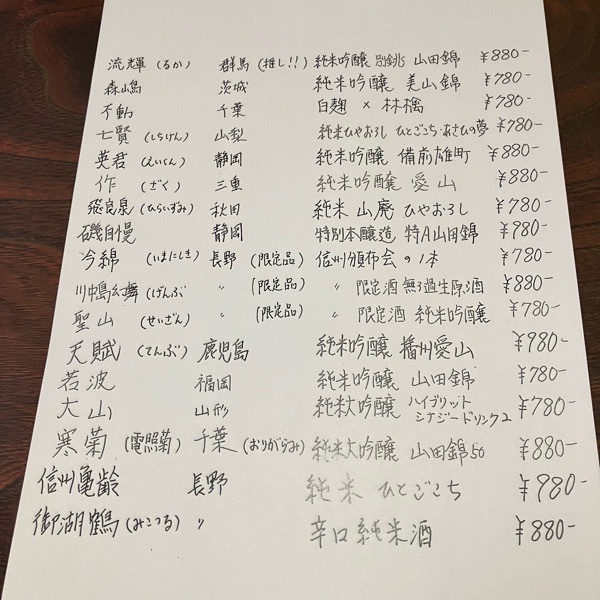 流輝(るか) 群馬(推し!!) 純米吟醸 別誂 山田錦 ¥880-
森嶋 茨城 純米吟醸 美山錦 ¥780-
不動 千葉 白麹 × 林檎 ¥780-
七賢(しちけん) 山梨 純米ひやおろし ひとごこち・あさひの夢 ¥780-
英君(えいくん) 静岡 純米吟醸 備前雄町 ¥880-
作(ざく) 三重 純米吟醸 愛山 ¥880-
飛良泉(ひらいずみ) 秋田 純米 山廃 ひやおろし ¥780-
磯自慢 静岡 特別本醸造 特A山田錦 ¥980-
今錦(いまにしき) 長野 (限定品) 信州頒布会の1本 ¥780-
川中島幻舞(げんぶ) 〃 (限定品) 〃 限定酒 無ろ過生原酒 ¥880-
聖山(せいざん) 〃 (限定品) 〃 限定酒 純米吟醸 ¥780-
天賦(てんぶ) 鹿児島 純米吟醸 播州愛山 ¥980-
若波 福岡 純米吟醸 山田錦 ¥780-
大山 山形 純米大吟醸 ハイブリット シナジードリンク2 ¥780-
寒菊(電照菊) 千葉(おりがらみ) 純米大吟醸 山田錦50 ¥880-
信州亀齢 長野 純米 ひとごこち ¥980-
御湖鶴(みこつる) 〃 辛口純米酒 ¥880-